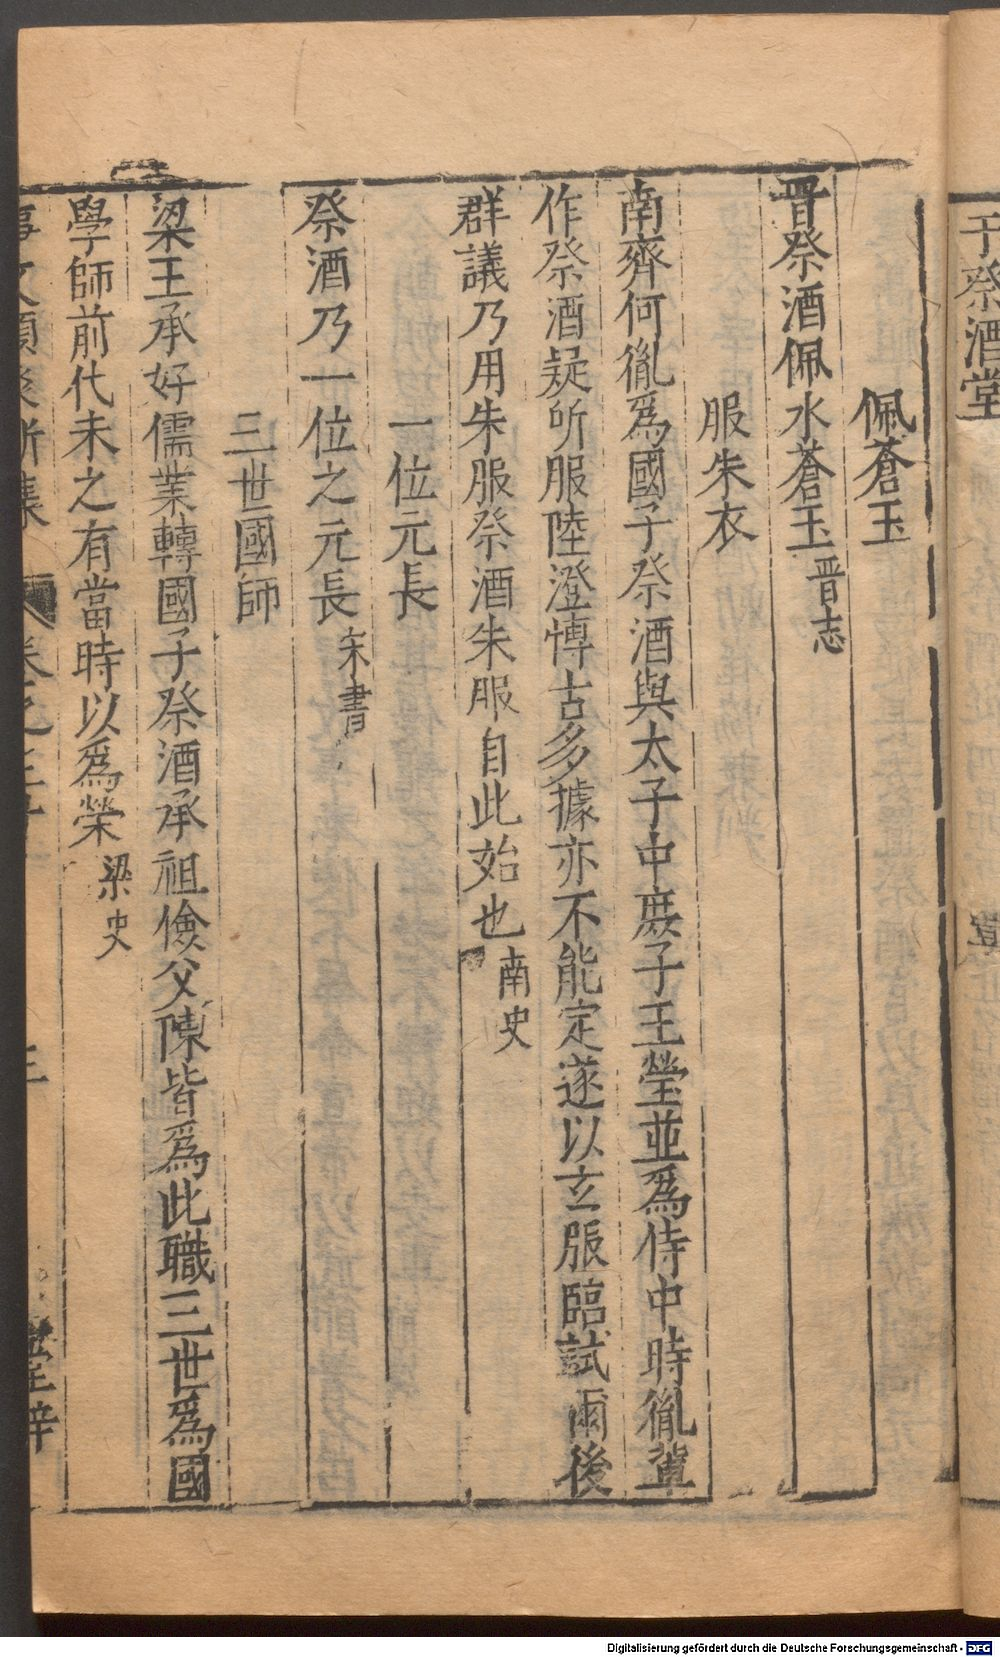 子祭酒堂
佩蒼玉
晉祭酒佩水蒼玉晋志
服朱衣
南齊何胤爲國子祭酒與太子中庶子王瑩並爲侍中時胤輩
作祭酒疑所服陸澄博古多據亦不能定遂以玄服臨試爾後
群議乃用朱服祭酒朱服自此始也南史
一位元長
祭酒乃一位之元長宋書
三世國師
梁王承好儒業轉國子祭酒承祖儉父陳皆爲此職三世爲國
學師前代未之有當時以爲榮梁史
事文類聚新集 卷之三十
Digitalisierung gefördert durch die Deutsche Forschungsgemeinschaft - DFG